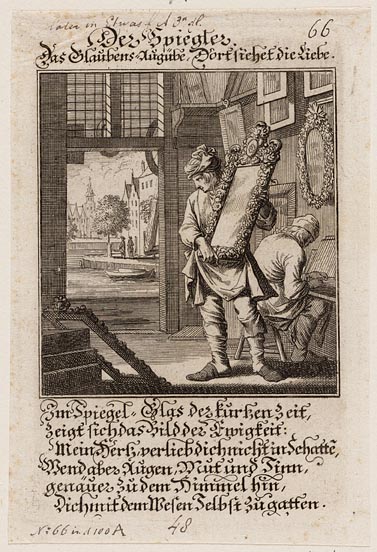 66
Der Spiegler.
Das Glaubens-Augübe. Dort sichet die Liebe.
Im Spiegel-Glas der kurtzen Zeit,
zeigt sich das Bild der Ewigkeit:
Mein Hertz, verlieb dich nicht in Schattē,
Wend aber Augen, Mut und Sinn,
genauer zu dem Himmel hin,
Dich mit dem Wesen Selbst zu gatten.
No 66 in d 100 A
48